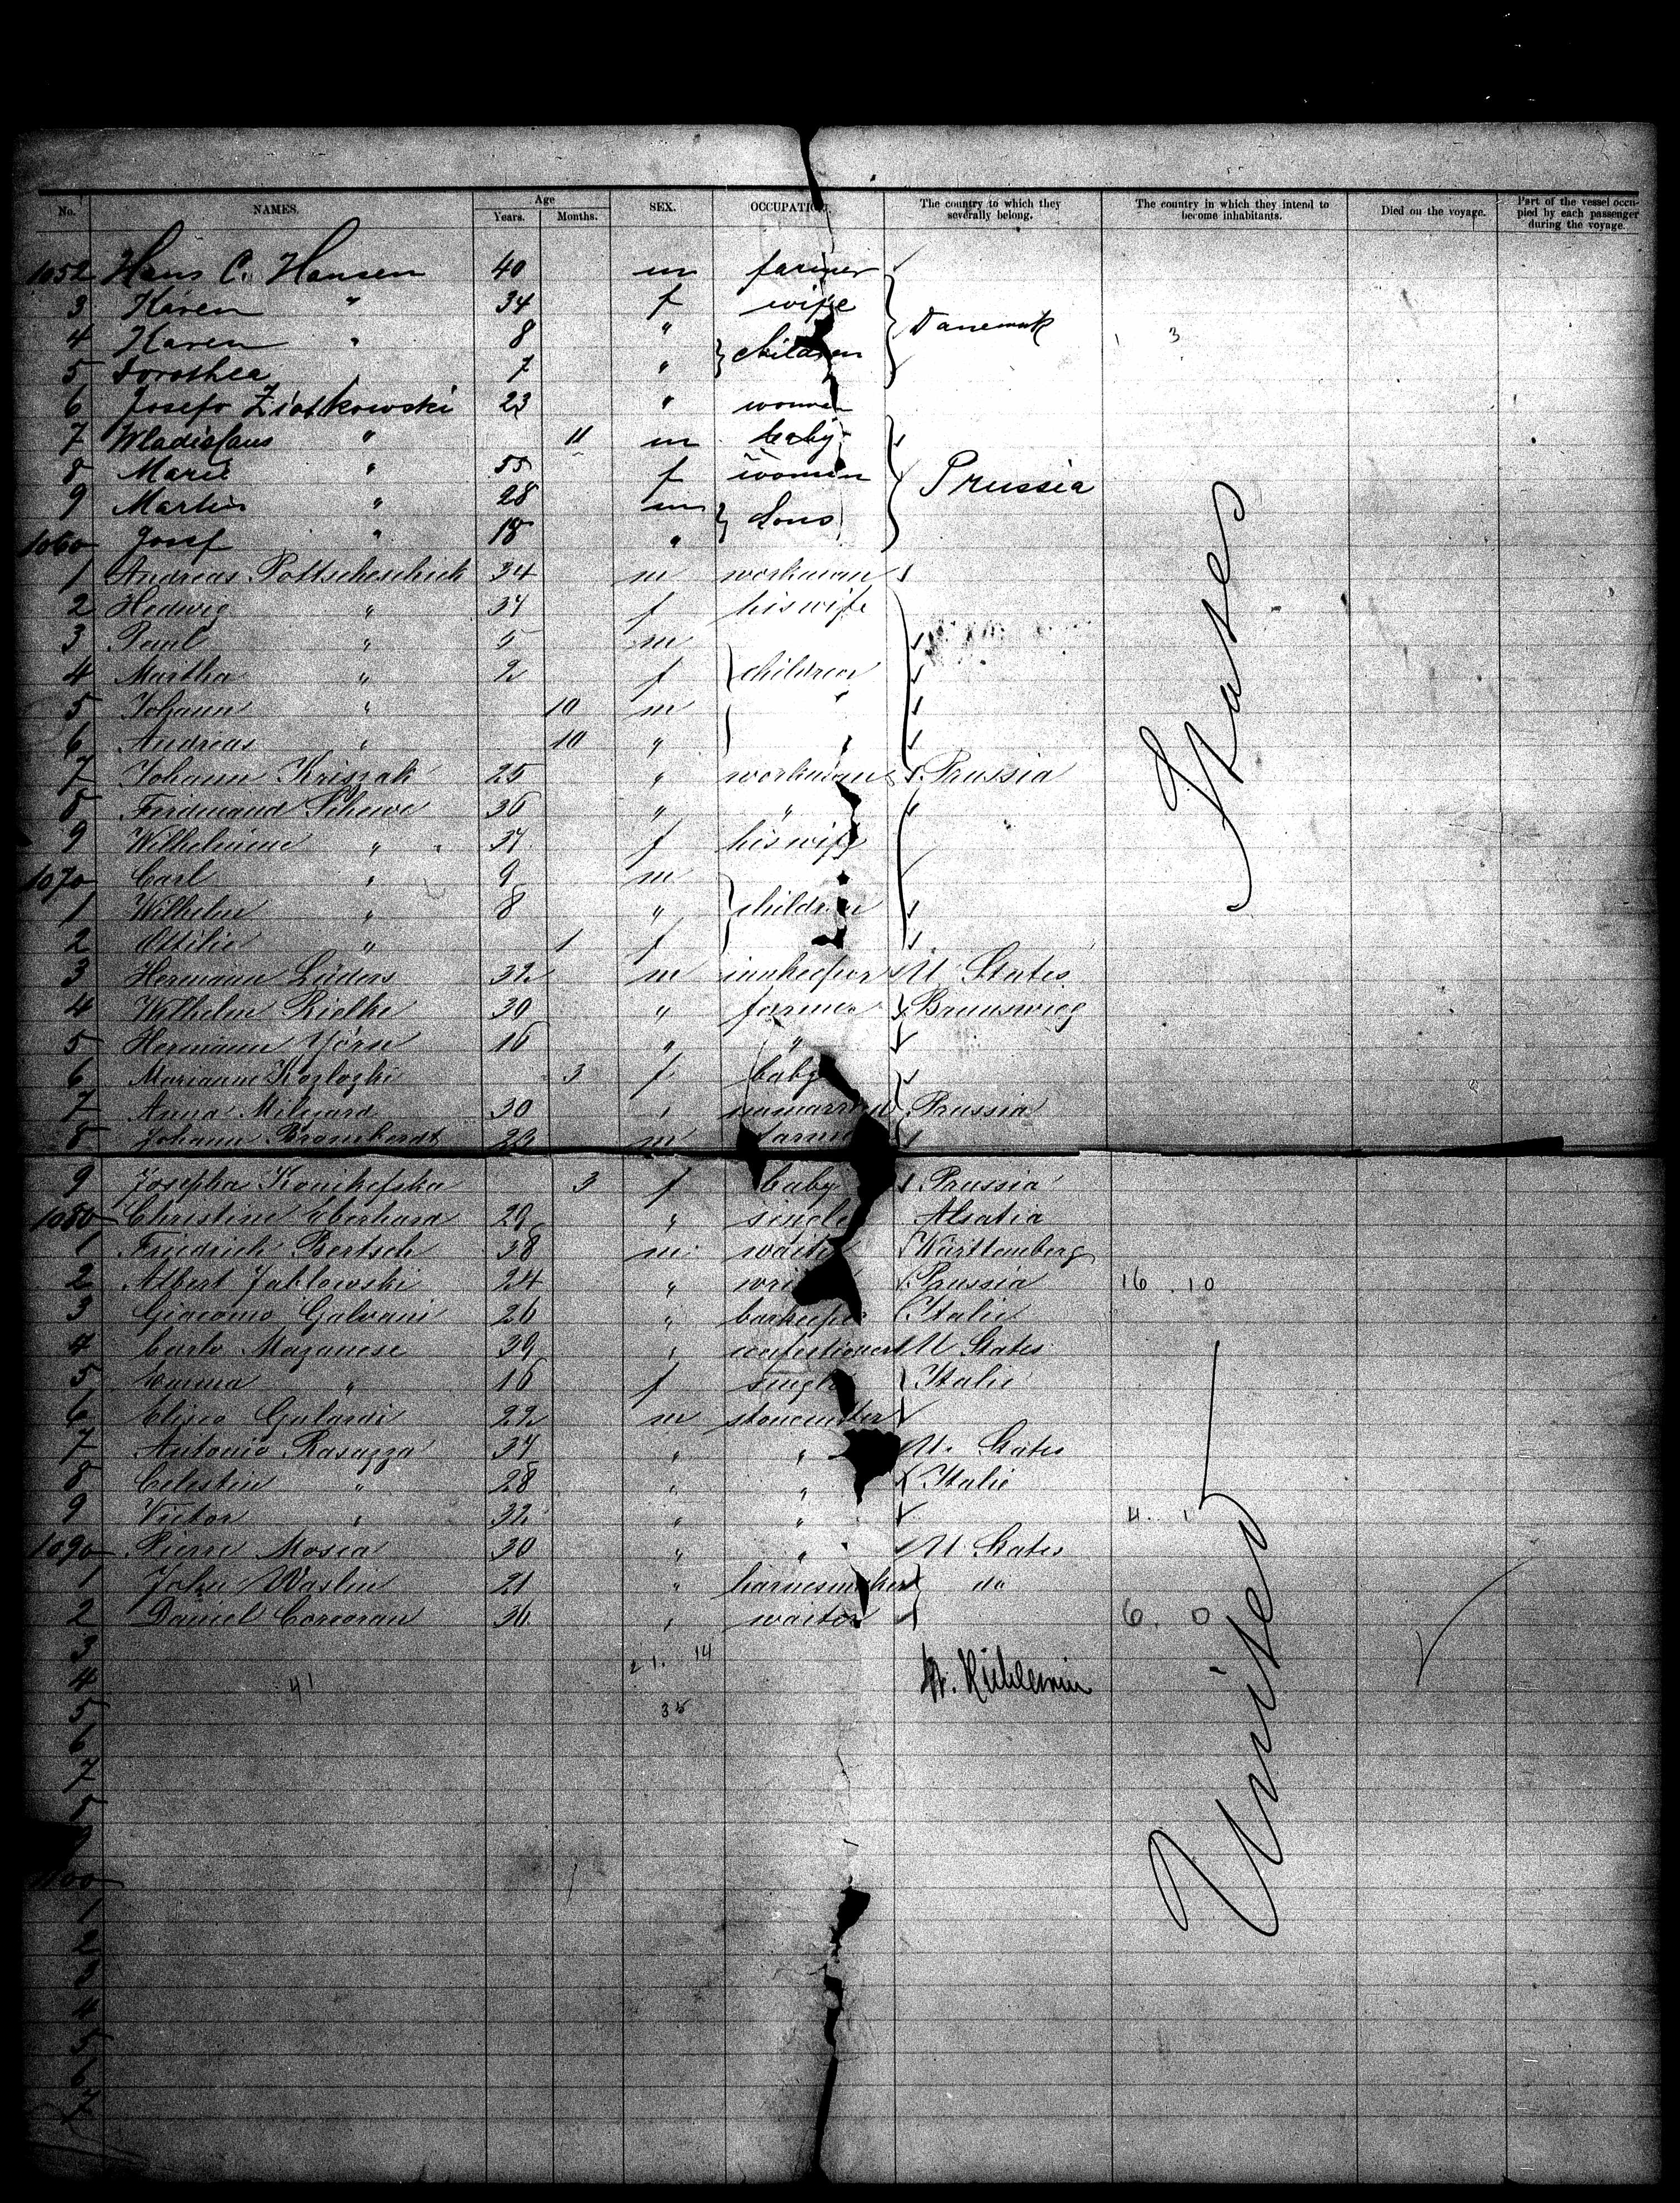 No. NAMES. Age Years. Months. SEX. OCCUPATION. The country to which they severally belong. The country in which they intend to become inhabitants. Died on the voyage. Part of the vessel occupied by each passenger during the voyage.
1052 Hans C. Hansen 40 m farmer
3 Karen " 34 f wife
4 Karen " 8 " children Danemark 1 3
5 Dorothea 7 "
6 Josefo Ziolkowski 23 " women
7 Wladislaus " 11 m baby
8 Marie " 55 f women Prussia
9 Martin " 28 m Sons
1060 Josef " 18 "
1 Andreas Pottscheschick 34 m workman
2 Hedwig " 37 f his wife
3 Paul " 5 m
4 Martha " 2 f children
5 Johann " 10 m
6 Andreas " 10 "
7 Johann Kriszak 25 " workman Prussia
8 Ferdinand Schewe 36 " "
9 Wilhelmine " 37 f his wife
1070 Carl " 9 m
1 Wilhelm " 8 " children
2 Ottilie " 1 f
3 Hermann Lüders 32 m innkeeper U States
4 Wilhelm Rielke 30 " farmer Brunswieg
5 Hermann Yörn 16 " "
6 Marianne Kozlozki 3 f baby
7 Anna Milyard 30 " unmarried Prussia
8 Johann Bromherdt 23 m farmer
9 Josepha Konikefska 3 f baby Prussia
1080 Christine Eberhard 29 " single Alsatia
1 Friedrich Bertsch 38 m waiter Württemberg
2 Albert Jablowski 24 " Prussia 16 10
3 Giacomo Galvani 26 " barkeeper Italie
4 Carlo Mazanese 39 " confectioner U States
5 Emma " 16 f single Italie
6 Eliseo Galardi 22 m stonecutter
7 Antonio Rasazza 37 " " U. States
8 Celestin " 28 " " Italie
9 Victor " 32 " " 4. 1
1090 Pierre Mosca 30 " " U States
1 John Waslin 21 " harnesmaker do
2 Daniel Corcoran 36 " waiter 6. 0
3 21. 14
4 41
5 35
6
7
8
9
1100
1
2
3
4
5
6
7
United States